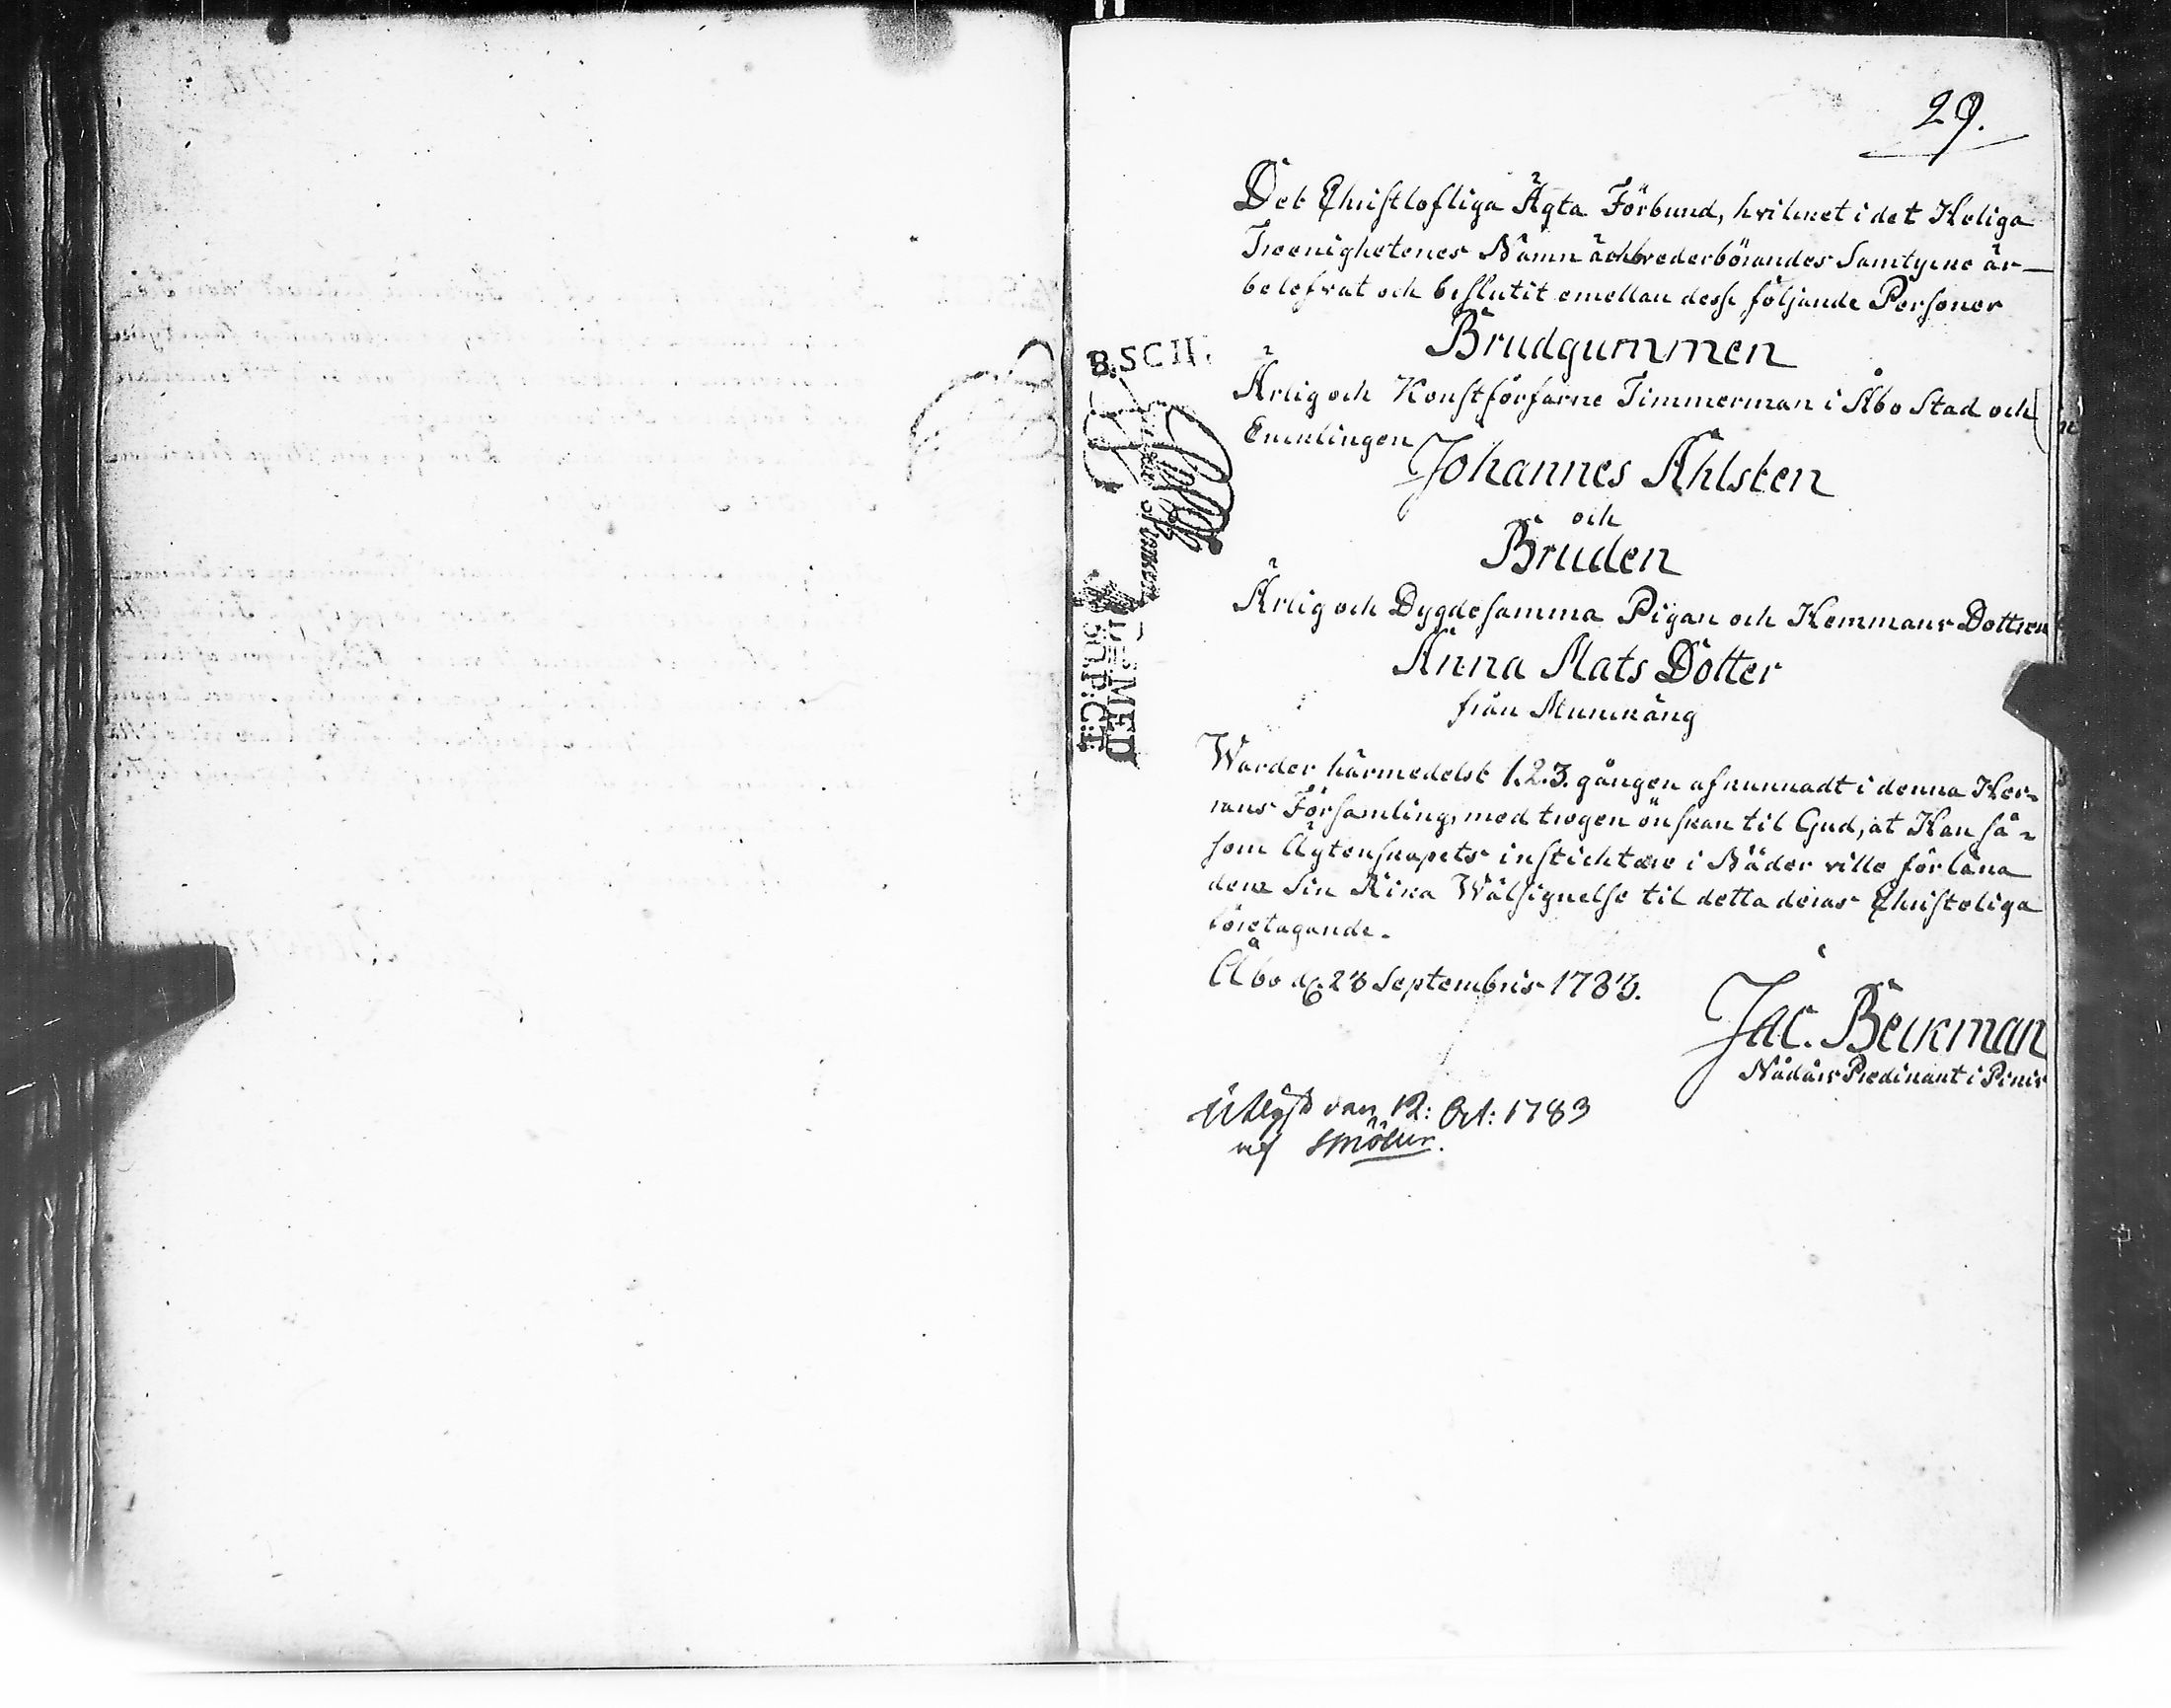 29.
Det Christlofliga Ägta Förbund, hvilket i det Heliga
Treenighetenes Namn och wederbörandes Samtycke är
belefvat och beslutit emellan desse följande Personer
Brudgummen
Ärlig och Konstförfarne Timmerman i Åbo Stad och
Enklingen
Johannes Ahlsten
och
Bruden
Ärlig och Dygdesamma Pigan och Hemmans Dottren
Anna Mats Dotter
från
Warder härmedelst 1.2.3. gången afkunnadt i denna Her-
rans Församling, med trogen önskan til Gud, at Han så-
som Ägtenskapets instichtare i Nåder ville förläna
dem Sin Rika Wälsignelse til detta deras Christeliga
företagande.
Åbo d. 28 Septembris 1783.
Jac. Beckman
Nådårs Predikant i
B.SCII.
MED
Utlyst den 12: Oct: 1783
af